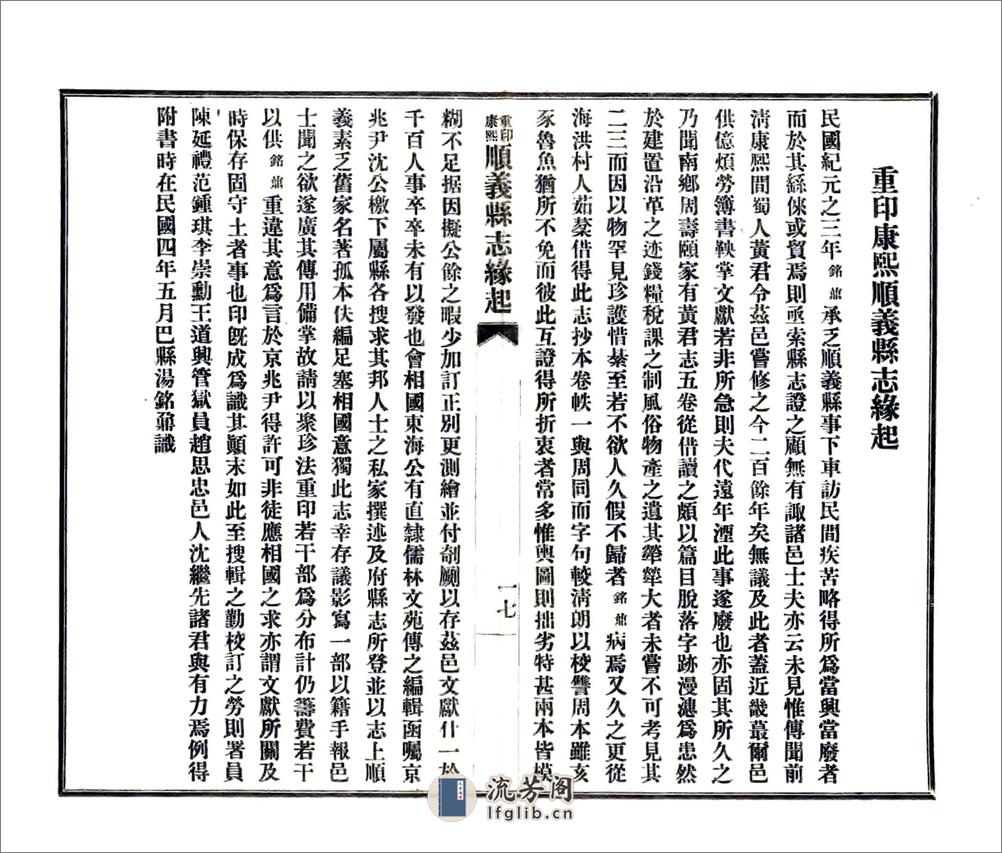 重印康熙順義縣志緣起
民國紀元之三年銘鼐承乏順義縣事下車訪民間疾苦略得所爲當興當廢者
而於其繇倈或貿焉則亟索縣志證之顧無有諏諸邑士夫亦云未見惟傳聞前
淸康熙間蜀人黃君令茲邑嘗修之今二百餘年矣無議及此者蓋近畿蕞爾邑
供億煩勞簿書鞅掌文獻若非所急則夫代遠年湮此事遂廢也亦固其所久之
乃聞南鄉周壽頤家有黃君志五卷從借讀之頗以篇目脫落字跡漫漶爲患然
於建置沿革之迹錢糧稅課之制風俗物產之遺其犖犖大者未嘗不可考見其
二三而因以物罕見珍護惜綦至若不欲人久假不歸者銘鼐病焉又久之更從
海洪村人茹棻借得此志抄本卷帙一與周同而字句較淸朗以校讐周本雖亥
豕魯魚猶所不免而彼此互證得所折衷者常多惟輿圖則拙劣特甚兩本皆模
重印康熙順義縣志緣起
一七
糊不足据因擬公餘之暇少加訂正別更測繪並付剞劂以存茲邑文獻什一於
千百人事卒卒未有以發也會相國東海公有直隸儒林文苑傳之編輯函囑京
兆尹沈公檄下屬縣各搜求其邦人士之私家撰述及府縣志所登並以志上順
義素乏舊家名著孤本佚編足塞相國意獨此志幸存議影寫一部以籍手報邑
士聞之欲遂廣其傳用備掌故請以聚珍法重印若干部爲分布計仍籌費若干
以供銘鼐重違其意爲言於京兆尹得許可非徒應相國之求亦謂文獻所關及
時保存固守土者事也印旣成爲識其顚末如此至搜輯之勤校訂之勞則署員
陳延禮范鍾琪李崇勳王道興管獄員趙思忠邑人沈繼先諸君與有力焉例得
附書時在民國四年五月巴縣湯銘鼐識
流芳阁
lfglib.cn